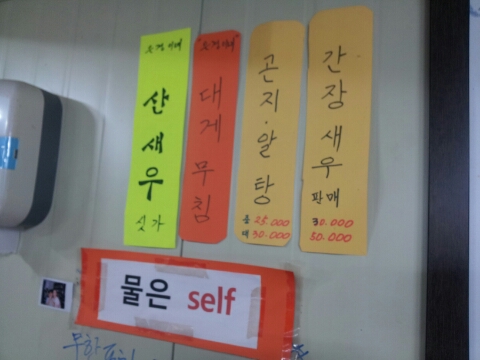 산새우
싯가
대게무침
곤지·알탕
중 25.000
대 30.000
간장새우
판매
30.000
50.000
물은 self